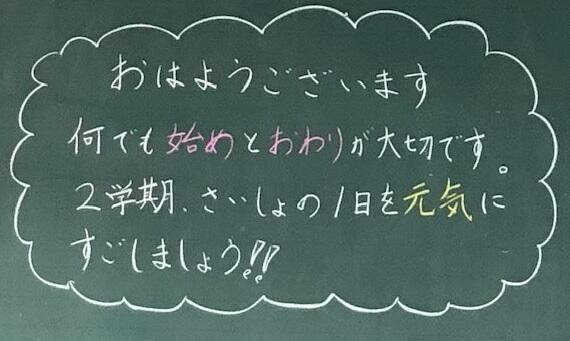 おはようございます
何でも始めとおわりが大切です。
2学期、さいしょの1日を元気に
すごしましょう!!